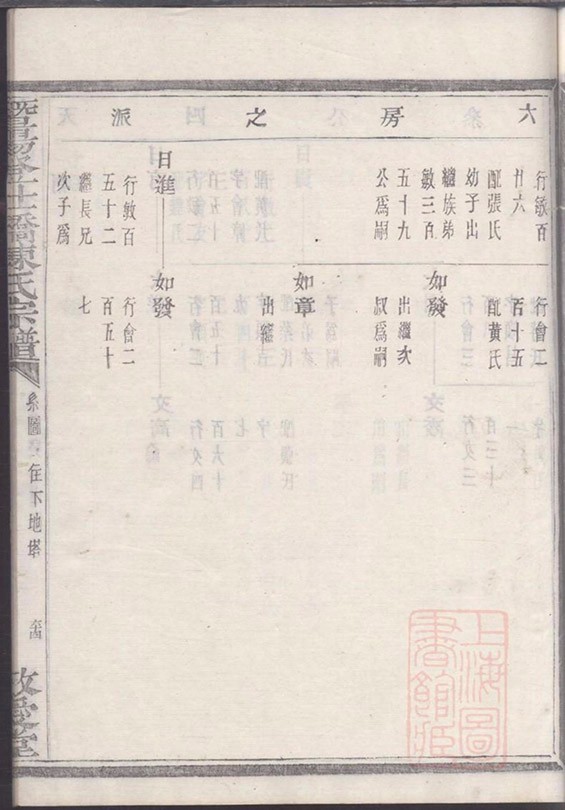 六房之派
行敏百
廿六
配張氏
幼子出
繼族弟
敏三百
五十九
公爲嗣
行會二
百十五
配黃氏
如發
出繼次
叔爲嗣
如章
出繼
日進
行敏百
五十二
繼長兄
次子爲
如發
行會二
百五十
七
橋陳氏宗譜
系圖
住下地塔
敬愛堂
上海圖書館藏